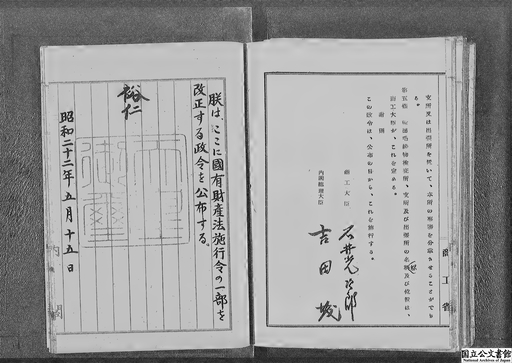 支所又は出張所を置いて、本所の事務を分掌させることができ
る。
商工大臣が、これを定める。
附則
この政令は、公布の日から、これを施行する。
商工大臣
石井光次郎
内閣総理大臣
吉田茂
商工省
朕は、ここに國有財產法施行令の一部を
改正する政令を公布する。
裕仁
昭和二十二年五月十五日
内閣
国立公文書館
National Archives of Japan